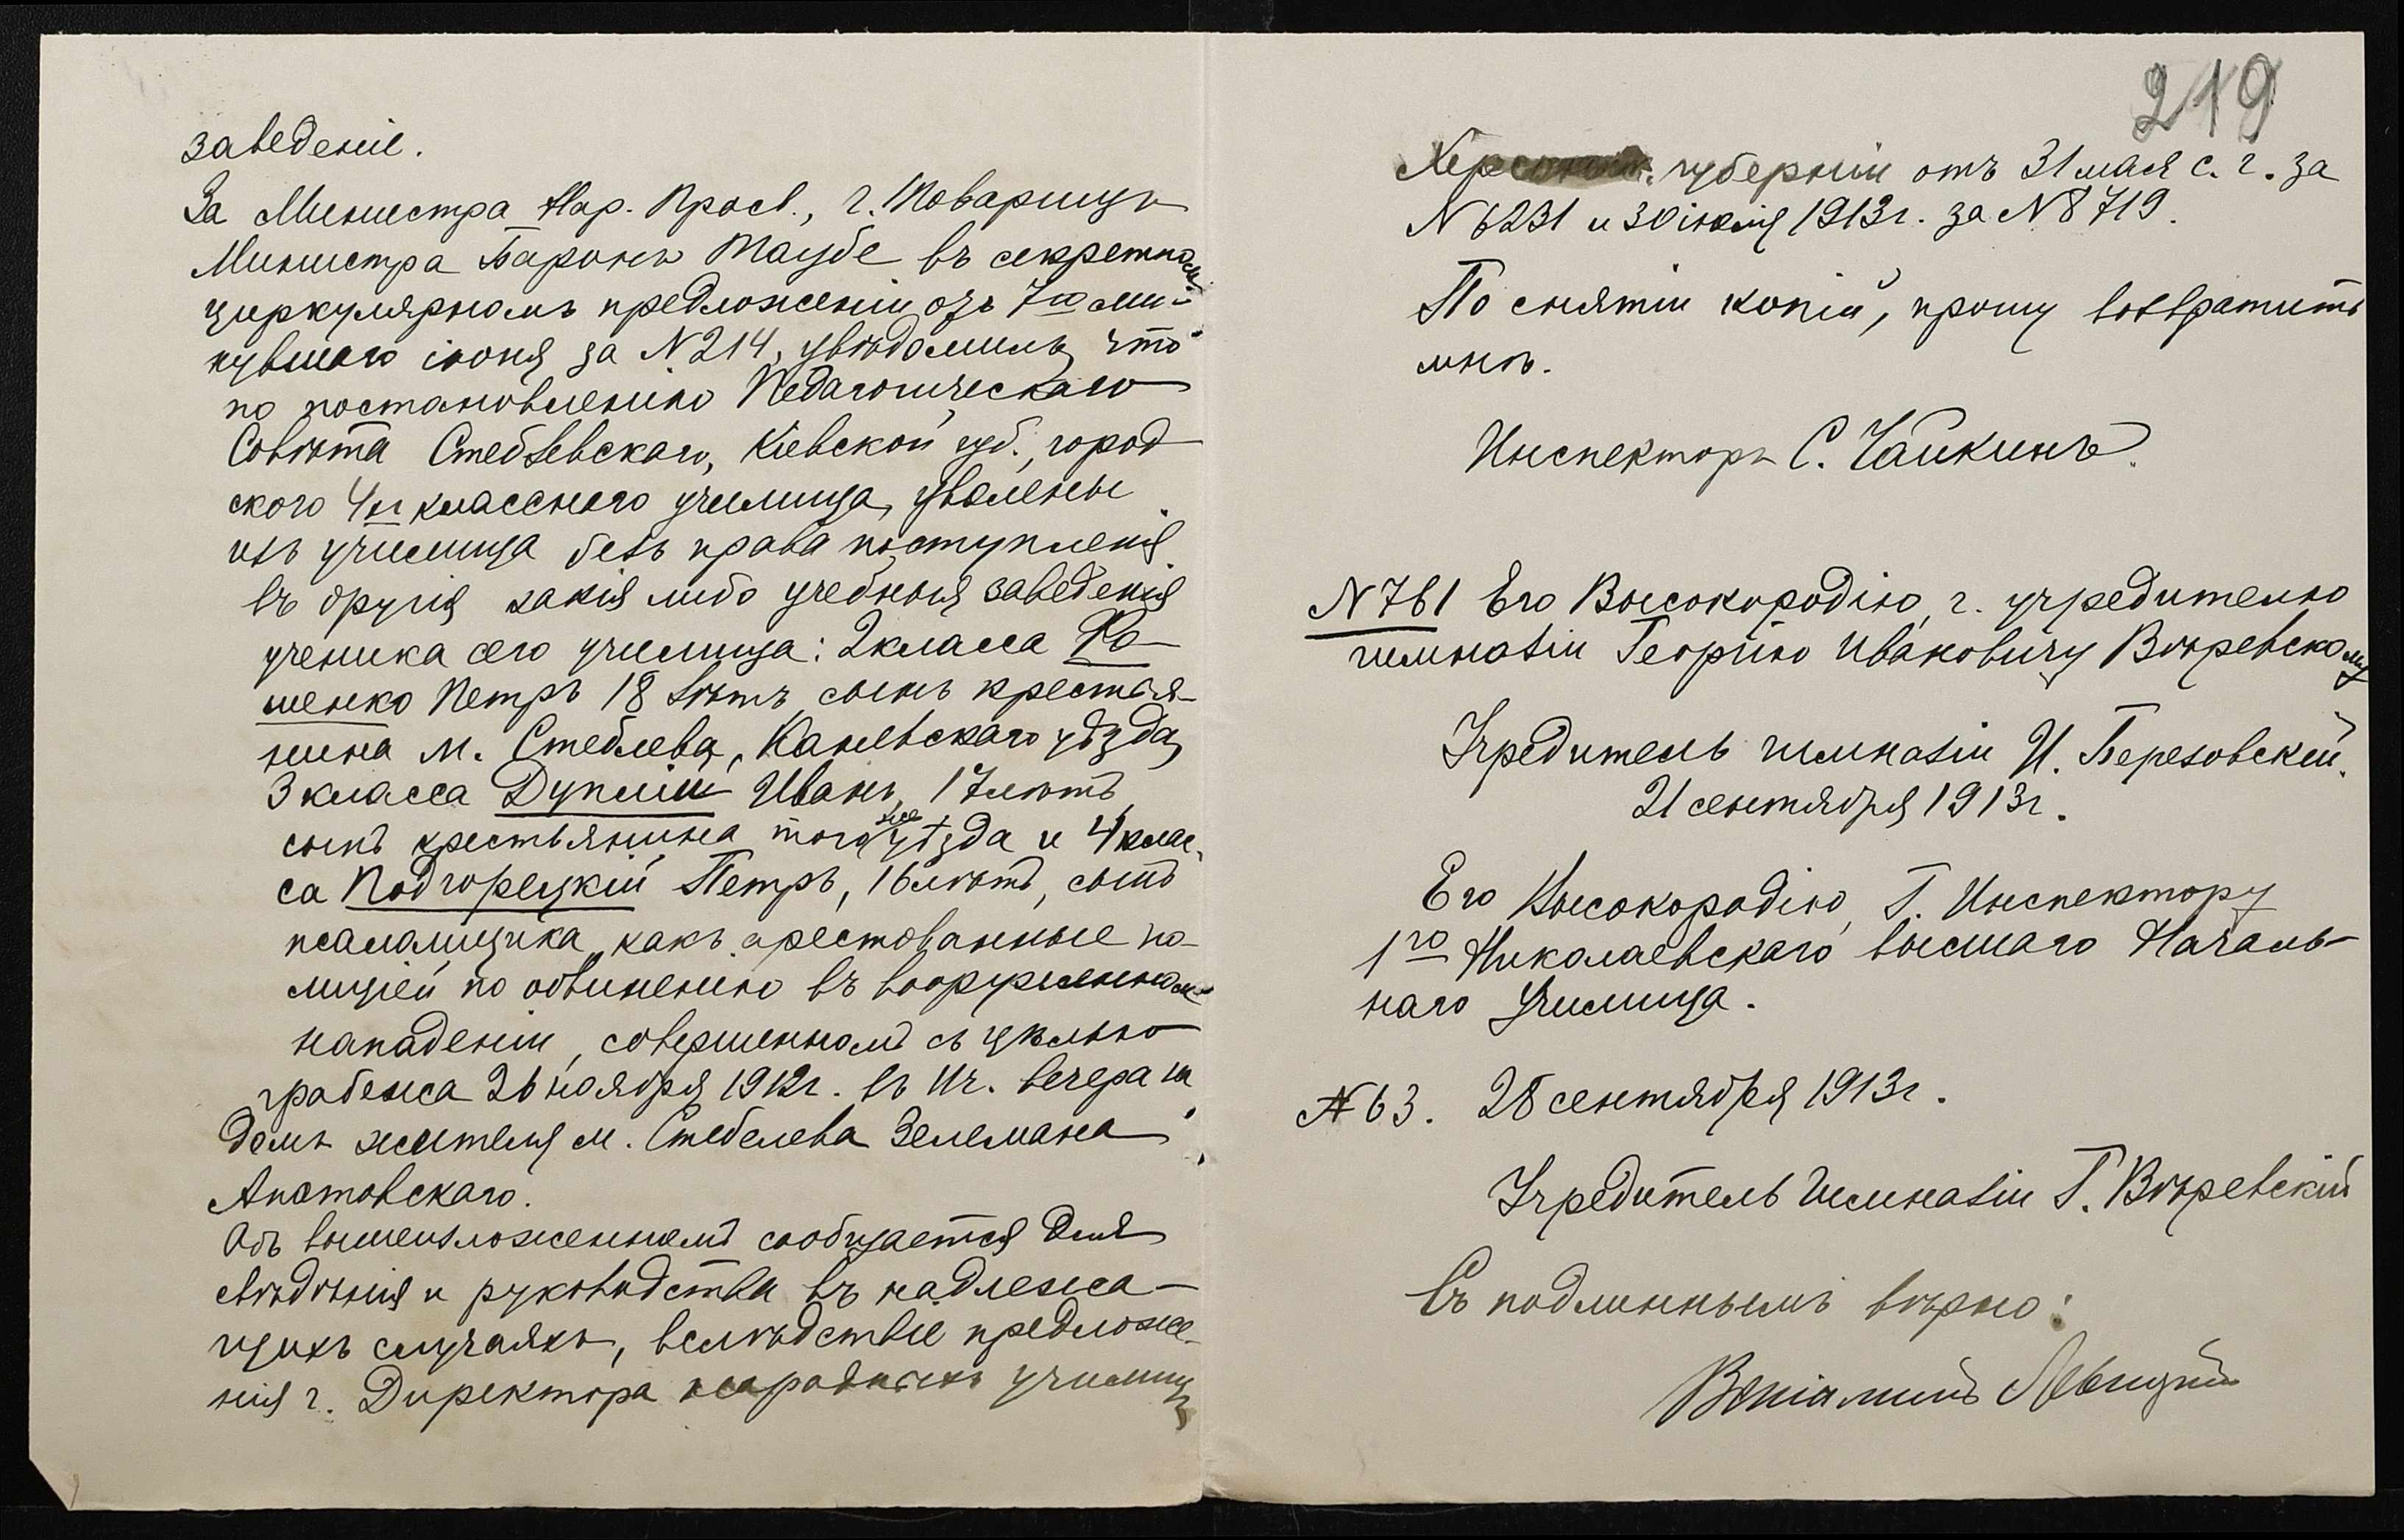 заведеніе.
За Министра Нар. Просв., г. Товарищъ
Министра Баронъ Таубе въ секретномъ
циркулярномъ предложеніи отъ 7го ми-
нувшаго іюня за N 214, увѣдомилъ, что
по постановленію Педагогическаго
Совѣта Стеблевскаго, Кіевской губ., город
ского 4хъ класснаго училища, уволены
изъ училища безъ права поступленія
въ другія какія либо учебныя заведенія
ученика сего училища: 2 класса Ро-
менко Петръ 18 лѣтъ, сынъ крестья-
нина м. Стеблева, Каневскаго уѣзда,
3 класса Дуплій Иванъ, 17 лѣтъ,
сынъ крестьянина того же уѣзда и 4 клас-
са Подгорецкій Петръ, 16 лѣтъ, сынъ
псаломщика, какъ арестованные по-
лиціей по обвиненію въ вооруженномъ
нападеніи, совершенномъ съ цѣлью
грабежа 26 ноября 1912 г. въ 11 ч. вечера на
домъ жителя м. Стебелева Зелемана
Апатовскаго.
Объ вышеизложенномъ сообщается для
свѣдѣнія и руководства въ надлежа-
щихъ случаяхъ, вслѣдствіе предложе-
нія г. Директора народныхъ училищъ
219
Херсонск. губерніи отъ 31 мая с. г. за
N 6231 и 30 іюля 1913 г. за N 8719.
По снятіи копій, прошу возвратить
мнѣ.
Инспекторъ С. Чайкинъ.
N 761 Его Высокородію, г. учредителю
гимназіи Георгію Ивановичу Вѣревскому
Учредитель гимназіи И. Березовскій.
21 сентября 1913 г.
Его Высокородію, Г. Инспектору
1го Николаевскаго высшаго Началь-
наго Училища.
N 63. 28 сентября 1913 г.
Учредитель Гимназіи Г. Вѣревскій
Съ подлиннымъ вѣрно:
Веніаминъ Левицкій